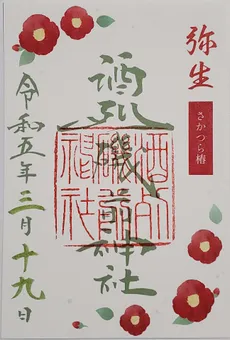 弥生
さかつら椿
酒列磯前神社
酒列磯前神社
令和五年三月十九日